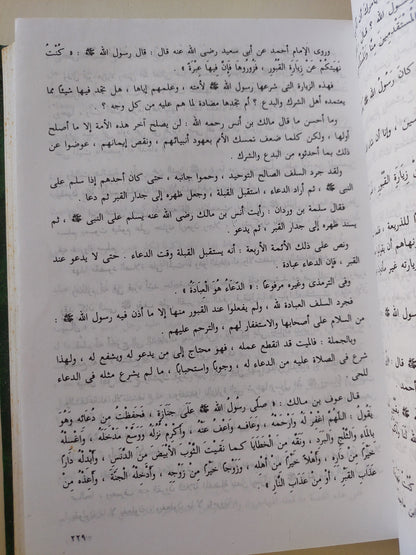 وروى الإمام أحمد عن أبي سعيد رضى الله عنه قال : قال رسول الله ﷺ : « كُنْتُ
نَهَيتكُمْ عَنْ زِيَارَةِ القُبُورِ ، فَزُورُوهَا فَإِنَّ فِيهَا عِبْرَةً » .
فهذه الزيارة التى شرعها رسول الله ﷺ لأمته ، وعلمهم إياها ، هل تجد فيها شيئًا مما
يعتمده أهل الشرك والبدع ؟ أم تجدها مضادة لما هم عليه من كل وجه ؟ .
وما أحسن ما قال مالك بن أنس رحمه الله : لن يصلح آخر هذه الأمة إلا ما أصلح
أولها ، ولكن كلما ضعف تمسك الأمم بعهود أنبيائهم ، ونقص إيمانهم ، عوضوا عن
ذلك بما أحدثوه من البدع والشرك .
ولقد جرد السلف الصالح التوحيد ، وحموا جانبه ، حتى كان أحدهم إذا سلم على
النبى ﷺ ، ثم أراد الدعاء ، استقبل القبلة ، وجعل ظهره إلى جدار القبر ثم دعا .
فقال سلمة بن وردان : رأيت أنس بن مالك رضى الله عنه يسلم على النبى ﷺ ، ثم
يسند ظهره إلى جدار القبر ، ثم يدعو .
ونص على ذلك الأئمة الأربعة : أنه يستقبل القبلة وقت الدعاء . حتى لا يدعو عند
القبر ، فإن الدعاء عبادة .
وفى الترمذى وغيره مرفوعًا : « الدّعَاءُ هُوَ الْعِبَادَةُ » .
فجرد السلف العبادة لله ، ولم يفعلوا عند القبور منها إلا ما أذن فيه رسول الله ﷺ :
من السلام على أصحابها والاستغفار لهم ، والترحم عليهم .
وبالجملة : فالميت قد انقطع عمله ، فهو محتاج إلى من يدعو له ويشفع له ، ولهذا
شرع فى الصلاة عليه من الدعاء له ، وجوبًا واستحبابًا ، ما لم يشرع مثله فى الدعاء
للحى .
قال عوف بن مالك : « صلّى رَسُولُ اللهِ ﷺ عَلَى جنَازَةٍ ، فَحَفِظْتُ مِنْ دُعَائِهِ وَهُوَ
يَقُولُ : اللّهُمَّ اغْفِرْ لَهُ وَارْحَمْهُ ، وعَافِهِ وَاعْفُ عَنْهُ ، وَأكْرِمْ نُزُلَهُ وَوَسِّعْ مَدْخَلَهُ ، وَاغْسِلْهُ
بِالْمَاءِ والثَّلْجِ وَالبرد ، ونَقِّه مِنَ الْخَطَايَا كما نقيت الثَّوبَ الأبيضَ مِنَ الدَّنَسِ ، وَأبْدِلْهُ دَارًا
خَيْرًا مِنْ دَارِهِ ، وَأهْلاً خَيْرًا مِنْ أهْلِهِ ، وَزَوْجًا خَيْرًا مِنْ زَوْجِه ، وَأدْخِلْهُ الْجَنَّةَ ، وَأعِذْهُ مِنَ
عَذَابِ الْقَبْرِ ، أوْ مِنْ عَذَابِ النَّارِ »
٢٢٩